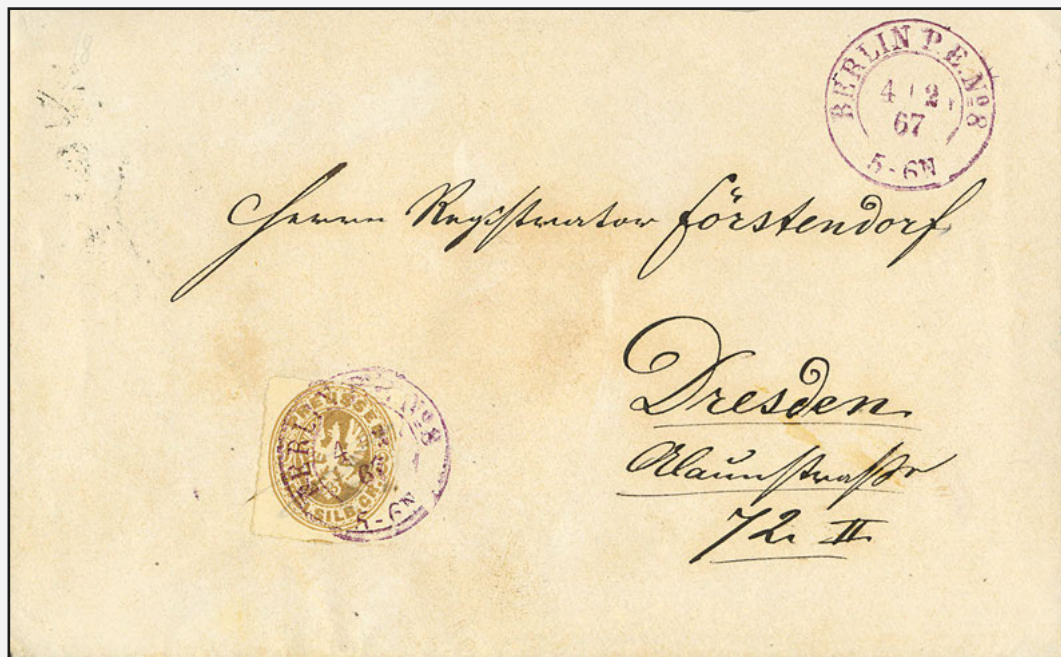 BERLIN P.E.No8
4 2
67
5-6N
Herrn Registrator Förstendorf
Dresden
Alaunstraße
72. II
PREUSSEN
SILB.GR.
BERLIN No8
4
67
5-6N